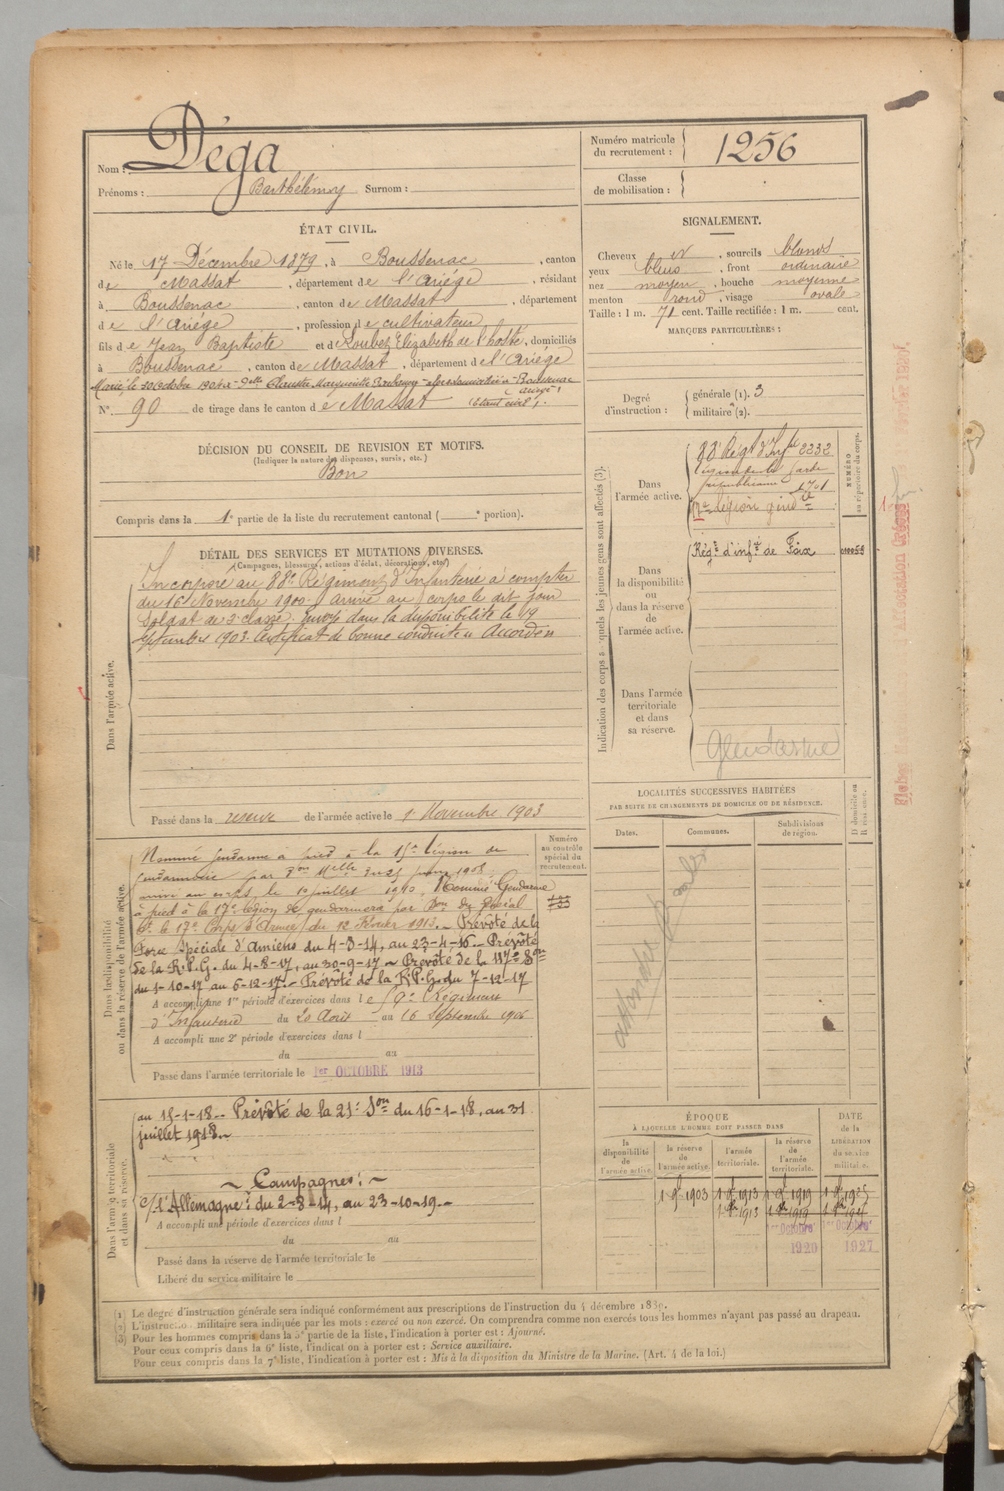 Nom : Déga
Prénoms : Barthélémy Surnom :
Numéro matricule du recrutement : 1256
Classe de mobilisation :
ÉTAT CIVIL.
Né le 17 Décembre 1879, à Boussenac, canton
de Massat, département de l'Ariége, résidant
à Boussenac, canton de Massat, département
de l'Ariége, profession de cultivateur
fils de Jean Baptiste et de Loubet Elizabeth de l'hoste, domiciliés
à Boussenac, canton de Massat, département de l'Ariége
Marié le 20 Octobre 1904 à Delle Marguerite domiciliée à Boussenac
(Ariège)
N° 90 de tirage dans le canton de Massat
SIGNALEMENT.
Cheveux et, sourcils blonds
yeux bleus, front ordinaire
nez moyen, bouche moyenne
menton rond, visage ovale
Taille : 1 m. 71 cent. Taille rectifiée : 1 m. cent.
MARQUES PARTICULIÈRES :
Degré d'instruction : générale (1). 3
militaire (2).
DÉCISION DU CONSEIL DE REVISION ET MOTIFS.
(Indiquer la nature des dispenses, sursis, etc.)
Bon
Compris dans la 1e partie de la liste du recrutement cantonal ( e portion).
DÉTAIL DES SERVICES ET MUTATIONS DIVERSES.
(Campagnes, blessures, actions d'éclat, décorations, etc.)
Dans l'armée active.
Incorporé au 88e Régiment d'Infanterie à compter
du 16 Novembre 1900. Arrivé au corps le dit jour
Soldat de 2e classe. Envoyé dans la disponibilité le 19
Septembre 1903. Certificat de bonne conduite Accordé
Passé dans la réserve de l'armée active le 1 Novembre 1903
Indication des corps auxquels les jeunes gens sont affectés (3).
NUMÉRO au répertoire du corps.
Dans l'armée active.
88e Régt d'Infie 2232
légion de la garde
républicaine 1701
légion gend
Dans la disponibilité ou dans la réserve de l'armée active.
Régt d'infie de Foix
Dans l'armée territoriale et dans sa réserve.
Gendarme
LOCALITÉS SUCCESSIVES HABITÉES
PAR SUITE DE CHANGEMENTS DE DOMICILE OU DE RÉSIDENCE.
Dates. Communes. Subdivisions de région.
D domicile ou R résidence.
Dans la disponibilité ou dans la réserve de l'armée active.
Numéro au contrôle spécial du recrutement.
Nommé gendarme à pied à la 15e légion de
gendarmerie par Don Melle du 25 juin 1908
arrivé au corps le 10 juillet 1910. Nommé Gendarme
à pied à la 17e légion de gendarmerie par Don du Général
Ct le 17e Corps d'Armée du 12 Février 1913. - Prévôté de la
Force Spéciale d'Amiens du 4-3-14, au 23-4-16. - Prévôté
de la R.P.G. du 4-8-17, au 30-9-17 - Prévôté de la 117e Son
du 1-10-17 au 6-12-17. - Prévôté de la R.P.G. du 7-12-17
A accompli une 1re période d'exercices dans le 59e Régiment
d'Infanterie du 20 Août au 16 Septembre 1906
A accompli une 2e période d'exercices dans l
du au
Passé dans l'armée territoriale le 1er OCTOBRE 1913
Dans l'armée territoriale et dans sa réserve.
au 15-1-18 - Prévôté de la 21e Son du 16-1-18, au 31
juillet 1918.
~ Campagnes : ~
c/ l'Allemagne : du 2-8-14, au 23-10-19. -
A accompli une période d'exercices dans l
du au
Passé dans la réserve de l'armée territoriale le
Libéré du service militaire le
ÉPOQUE
À LAQUELLE L'HOMME DOIT PASSER DANS
la disponibilité de l'armée active. la réserve de l'armée active. l'armée territoriale. la réserve de l'armée territoriale.
DATE de la LIBÉRATION du service militaire.
1 9bre 1903 1 9bre 1913 1 9bre 1919 1 9bre 1925
1er Octobre 1920 1er Octobre 1927
(1) Le degré d'instruction générale sera indiqué conformément aux prescriptions de l'instruction du 4 décembre 1889.
(2) L'instruction militaire sera indiquée par les mots : exercé ou non exercé. On comprendra comme non exercés tous les hommes n'ayant pas passé au drapeau.
(3) Pour les hommes compris dans la 5e partie de la liste, l'indication à porter est : Ajourné.
Pour ceux compris dans la 6e liste, l'indication à porter est : Service auxiliaire.
Pour ceux compris dans la 7e liste, l'indication à porter est : Mis à la disposition du Ministre de la Marine. (Art. 4 de la loi.)